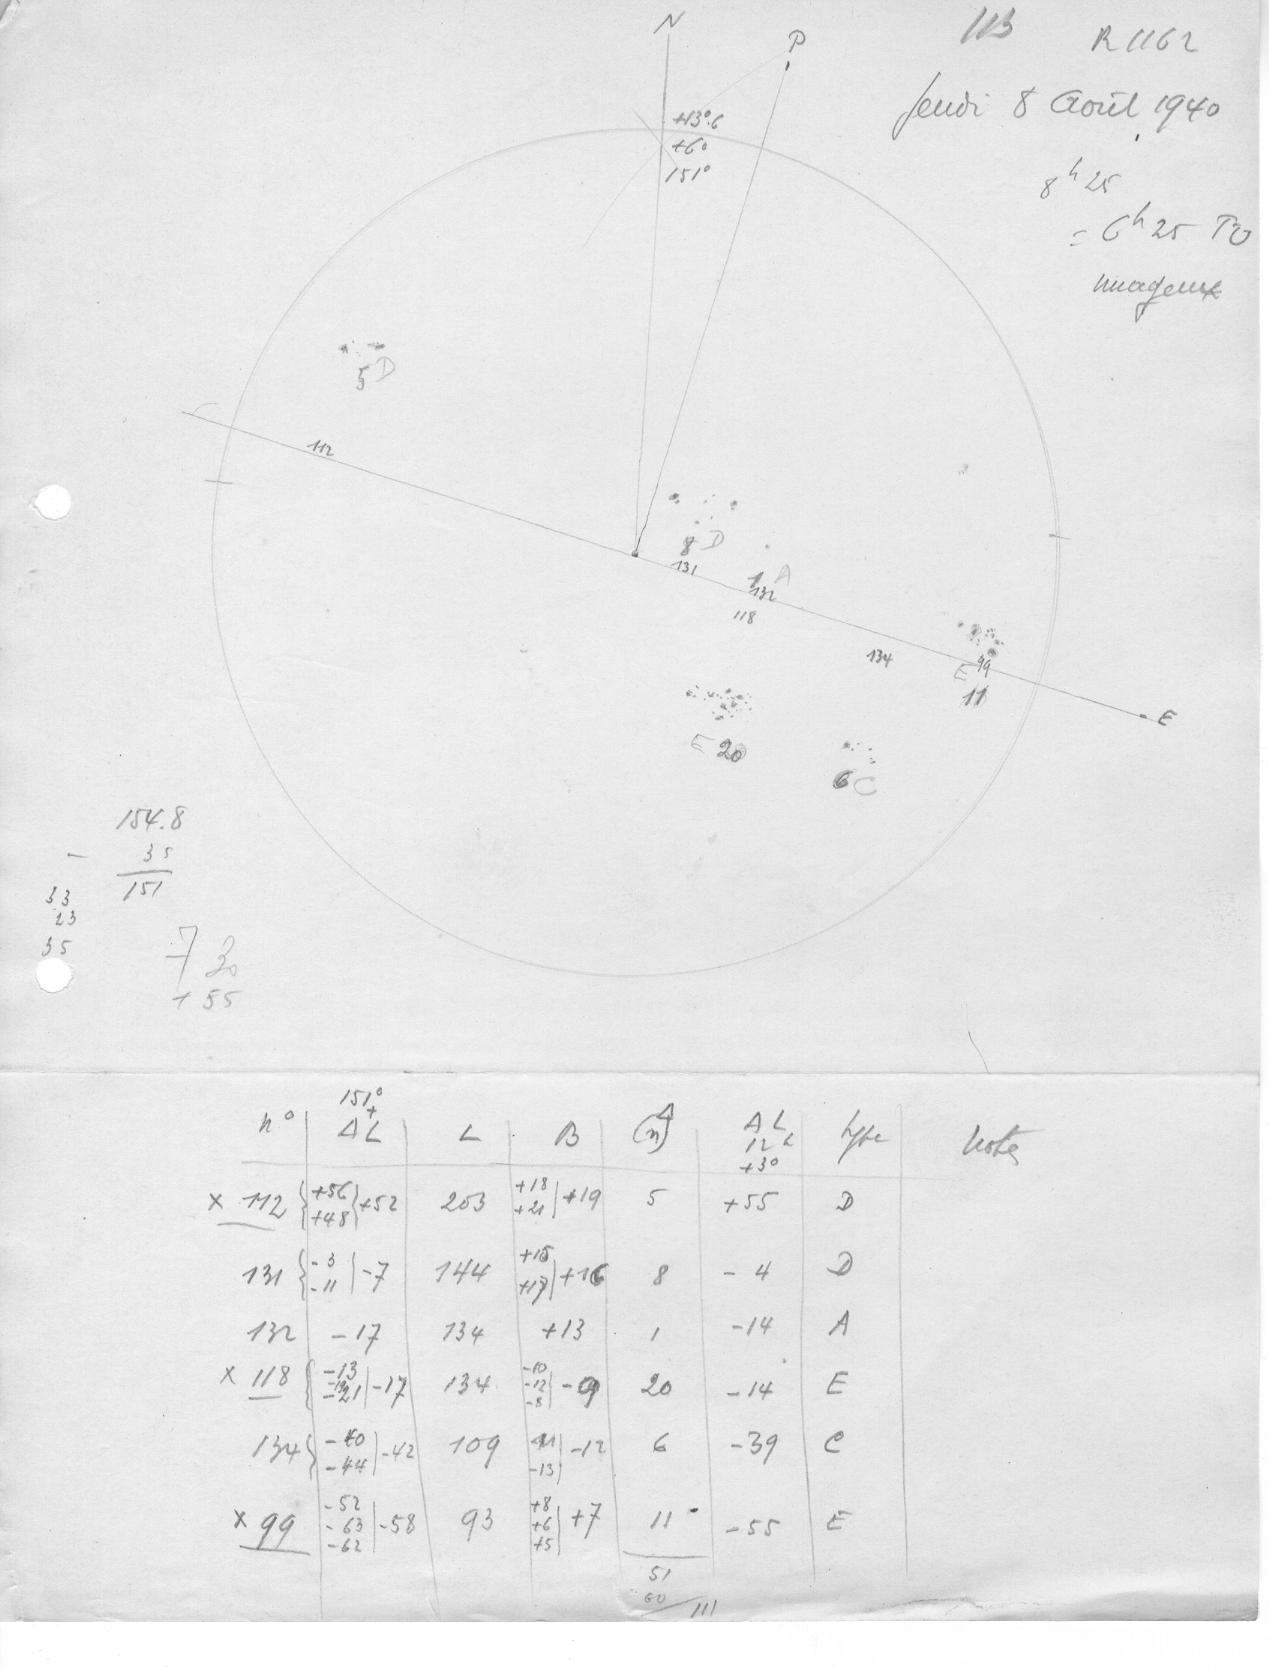 N
P
113
R 1162
Jeudi 8 Août 1940
8h 25
= 6h 25 TU
nuageux
+13°.6
+6°
151°
5 D
112
8 D
131
1 A
132
118
134
E 99
11
E
E 20
6 C
154.8
- 35
151
33
23
35
7 30
1 55
n° | 151° + ΔL | L | B | (n) | ΔL 12h +3° | type | notes
x 112 { +56 +48 } +52 | 203 | +18 +21 | +19 | 5 | +55 | D
131 { -3 -11 | -7 | 144 | +15 +17 | +16 | 8 | -4 | D
132 | -17 | 134 | +13 | 1 | -14 | A
x 118 { -13 -21 | -17 | 134 | -10 -12 -8 | -9 | 20 | -14 | E
134 { -40 -44 | -42 | 109 | -11 -13 | -12 | 6 | -39 | C
x 99 | -52 -63 -62 | -58 | 93 | +8 +6 +5 | +7 | 11 | -55 | E
51
60
111